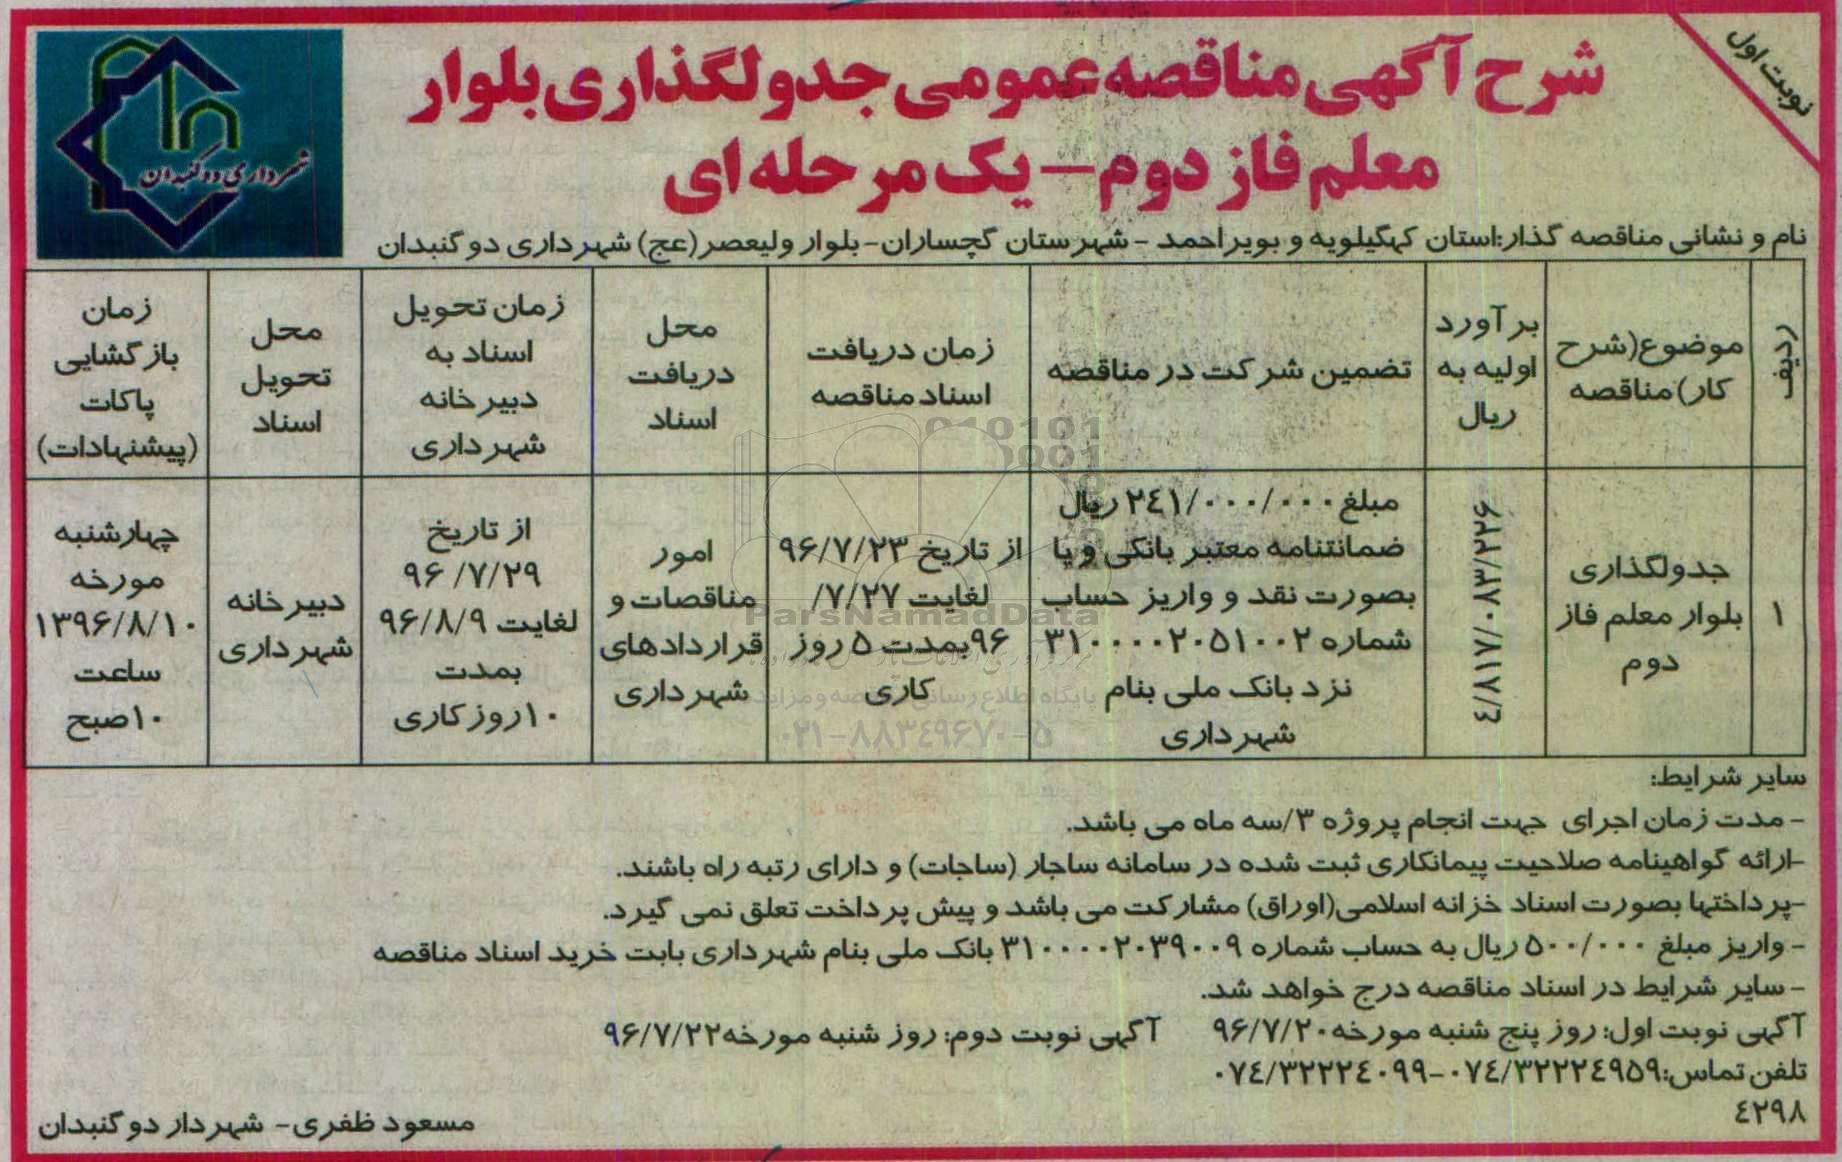 نوبت اول
شرح آگهی مناقصه عمومی جدولگذاری بلوار
معلم فاز دوم – یک مرحله ای
شهرداری دوگنبدان
نام و نشانی مناقصه گذار:استان کهگیلویه و بویراحمد - شهرستان گچساران- بلوار ولیعصر(عج) شهرداری دوگنبدان
ردیف
موضوع(شرح
کار)مناقصه
برآورد
اولیه به
ریال
تضمین شرکت در مناقصه
زمان دریافت
اسناد مناقصه
محل
دریافت
اسناد
زمان تحویل
اسناد به
دبیرخانه
شهرداری
محل
تحویل
اسناد
زمان
بازگشایی
پاکات
(پیشنهادات)
۱
جدولگذاری
بلوار معلم فاز
دوم
٤/۸۱۷/۰۸۳/۲۲۶
مبلغ ۲٤۱/۰۰۰/۰۰۰ ریال
ضمانتنامه معتبر بانکی و یا
بصورت نقد و واریز حساب
شماره ۳۱۰۰۰۰۲۰۵۱۰۰۲
نزد بانک ملی بنام
شهرداری
از تاریخ ۹۶/۷/۲۳
لغایت ۷/۲۷/
۹۶بمدت ۵ روز
کاری
امور
مناقصات و
قراردادهای
شهرداری
از تاریخ
۹۶ /۷/۲۹
لغایت ۹۶/۸/۹
بمدت
۱۰روزکاری
دبیرخانه
شهرداری
چهارشنبه
مورخه
۱۳۹۶/۸/۱۰
ساعت
۱۰صبح
ParsNamadData
۰۲۱-۸۸۳٤۹۶۷۰-۵
سایر شرایط:
- مدت زمان اجرای جهت انجام پروژه ۳/سه ماه می باشد.
-ارائه گواهینامه صلاحیت پیمانکاری ثبت شده در سامانه ساجار (ساجات) و دارای رتبه راه باشند.
-پرداختها بصورت اسناد خزانه اسلامی(اوراق) مشارکت می باشد و پیش پرداخت تعلق نمی گیرد.
- واریز مبلغ ۵۰۰/۰۰۰ ریال به حساب شماره ۳۱۰۰۰۰۲۰۳۹۰۰۹ بانک ملی بنام شهرداری بابت خرید اسناد مناقصه
- سایر شرایط در اسناد مناقصه درج خواهد شد.
آگهی نوبت اول: روز پنج شنبه مورخه۹۶/۷/۲۰ آگهی نوبت دوم: روز شنبه مورخه۹۶/۷/۲۲
تلفن تماس:۰۷٤/۳۲۲۲٤۹۵۹-۰۷٤/۳۲۲۲٤۰۹۹
٤۲۹۸
مسعود ظفری- شهردار دوگنبدان